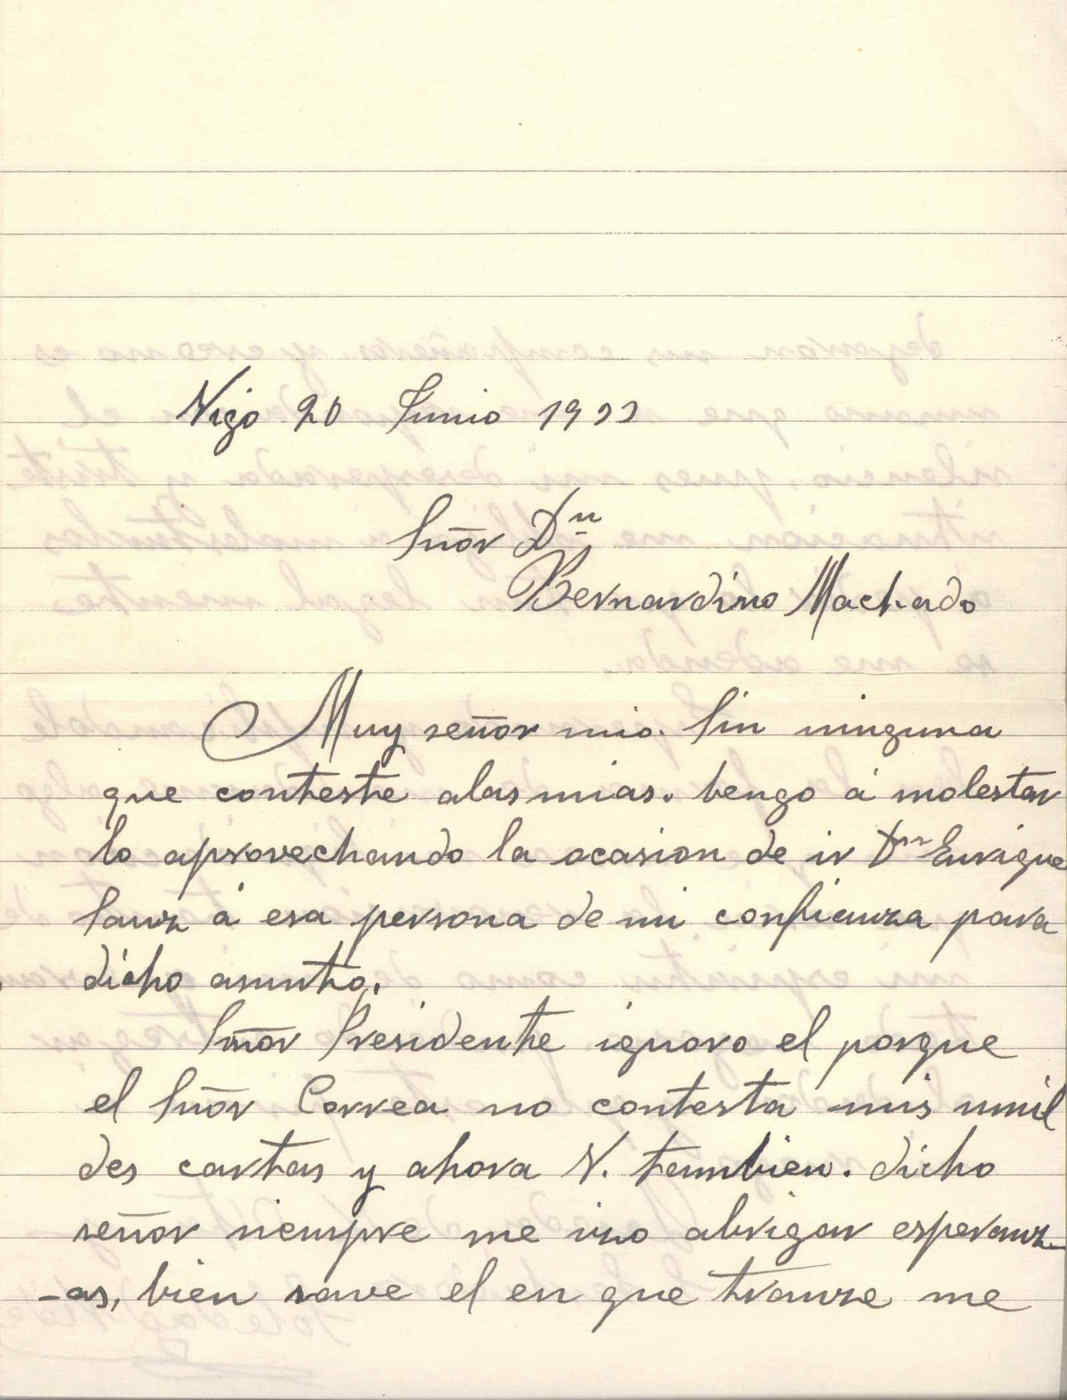 Vigo 20 Junio 1922
Sñor Dn
Bernardino Machado
Muy señor mio. Sin ninguna
que conteste alas mias. bengo á molestar
lo aprovechando la ocasion de ir Dn Enrique
Sanz á esa persona de mi confianza para
dicho asunto.
Sñor Presidente ignoro el porque
el Sñor Correa no contesta mis umil
des cartas y ahora V. tambien. dicho
señor siempre me izo abrigar esperanz_
-as, bien save el en que tranze me